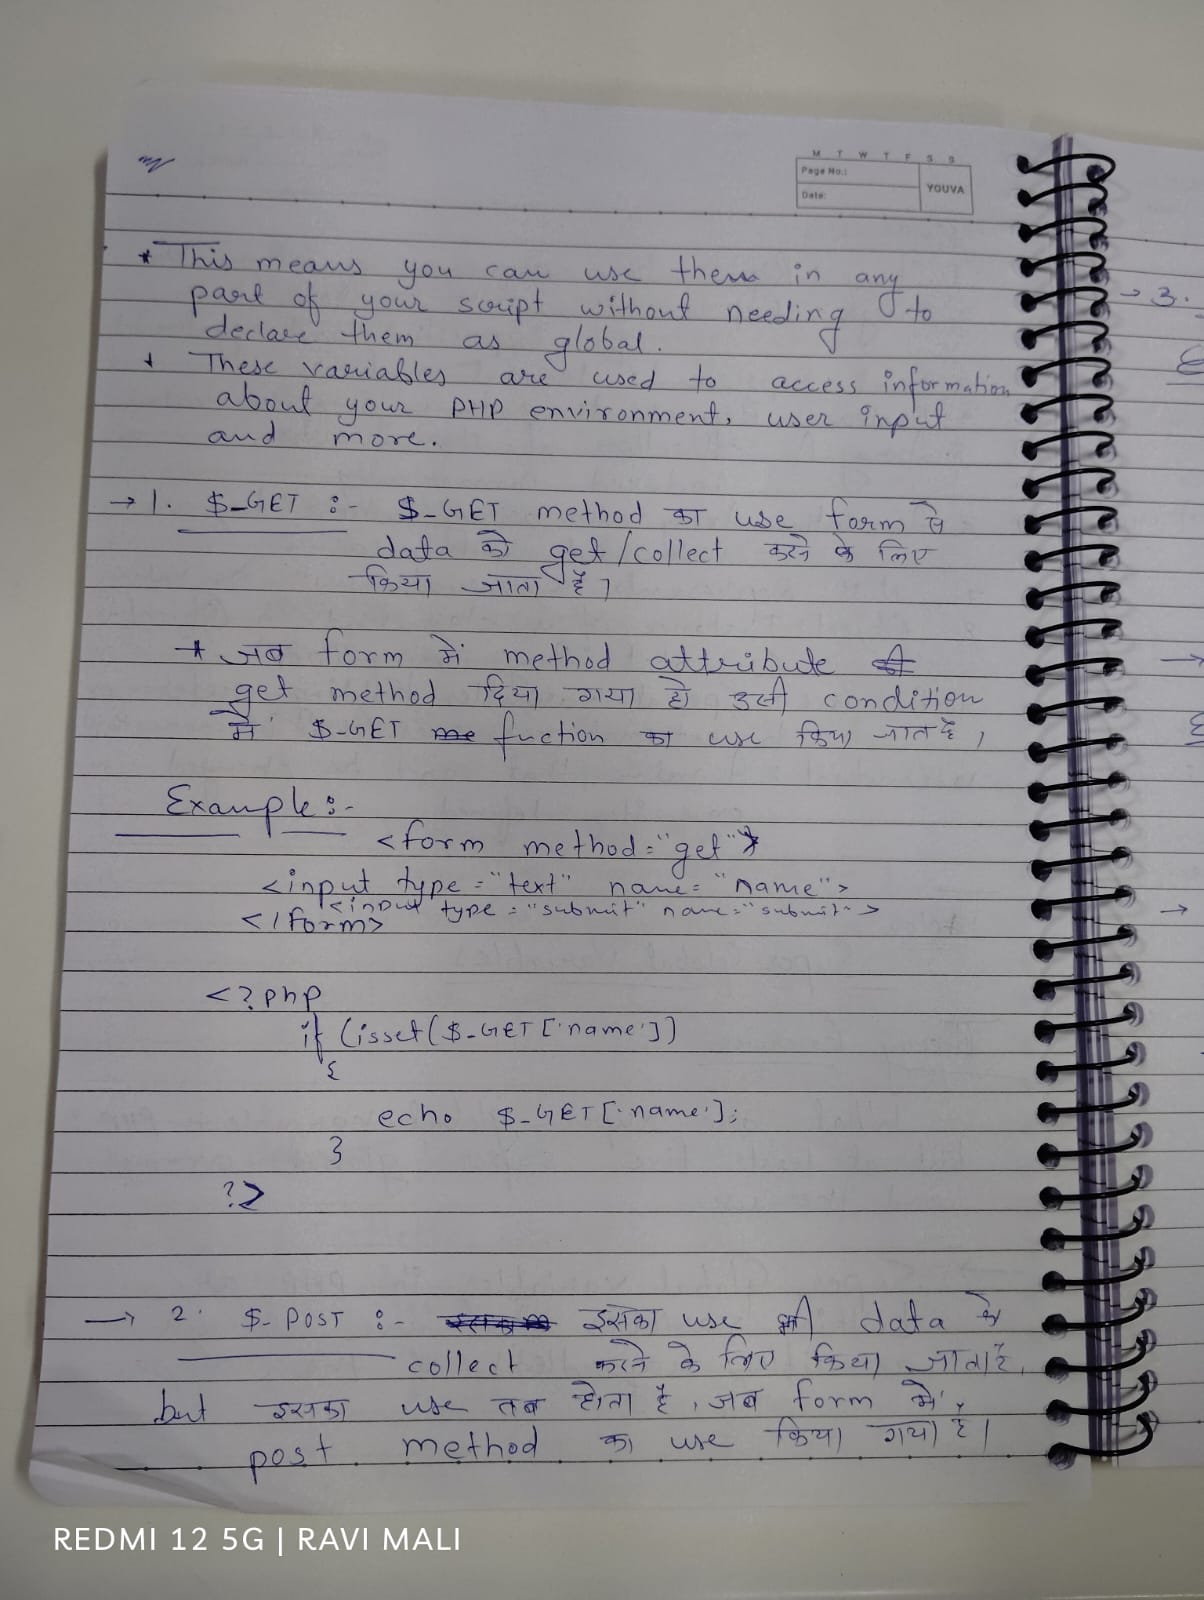 M T W T F S S
Page No.:
YOUVA
Date:
* This means you can use them in any
part of your script without needing to
declare them as global.
* These variables are used to access information
about your PHP environment, user input
and more.
→ 1. $_GET :- $_GET method का use form से
data को get/collect करने के लिए
किया जाता है।
* जब form में method attribute
get method दिया गया हो उसी condition
में $_GET fuction का use किया जात है,
Example :-
<form method="get">
<input type="text" name="name">
<input type="submit" name="submit">
</form>
<?php
if (isset($_GET['name'])
{
echo $_GET['name'];
}
?>
→ 2. $_POST :- इसका use भी data को
collect करने के लिए किया जाता है,
but इसका use तब होता है, जब form में
post method का use किया गया है।
→ 3.
REDMI 12 5G | RAVI MALI